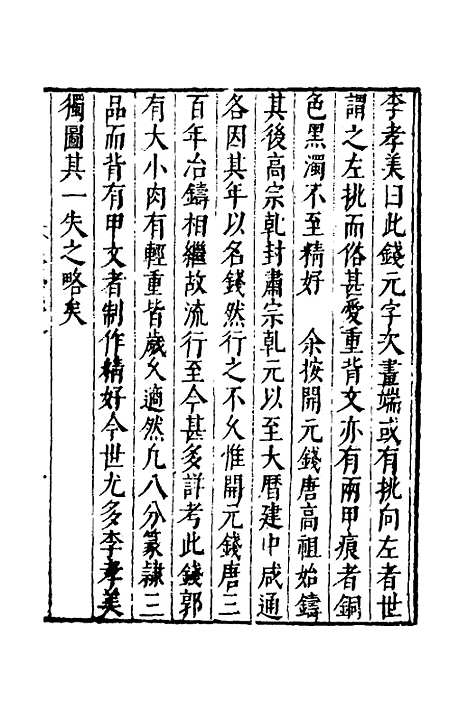 李孝美曰此錢元字次畫端或有挑向左者世
謂之左挑而俗甚愛重背文亦有兩甲痕者銅
色黑濁不至精好　余按開元錢唐高祖始鑄
其後高宗乹封肅宗乹元以至大曆建中咸通
各因其年以名錢然行之不乆惟開元錢唐三
百年冶鑄相繼故流行至今甚多詳考此錢郭
有大小肉有輕重皆歲乆適然凢八分篆隷三
品而背有甲文者制作精好今世尤多李孝美
獨圖其一失之略矣